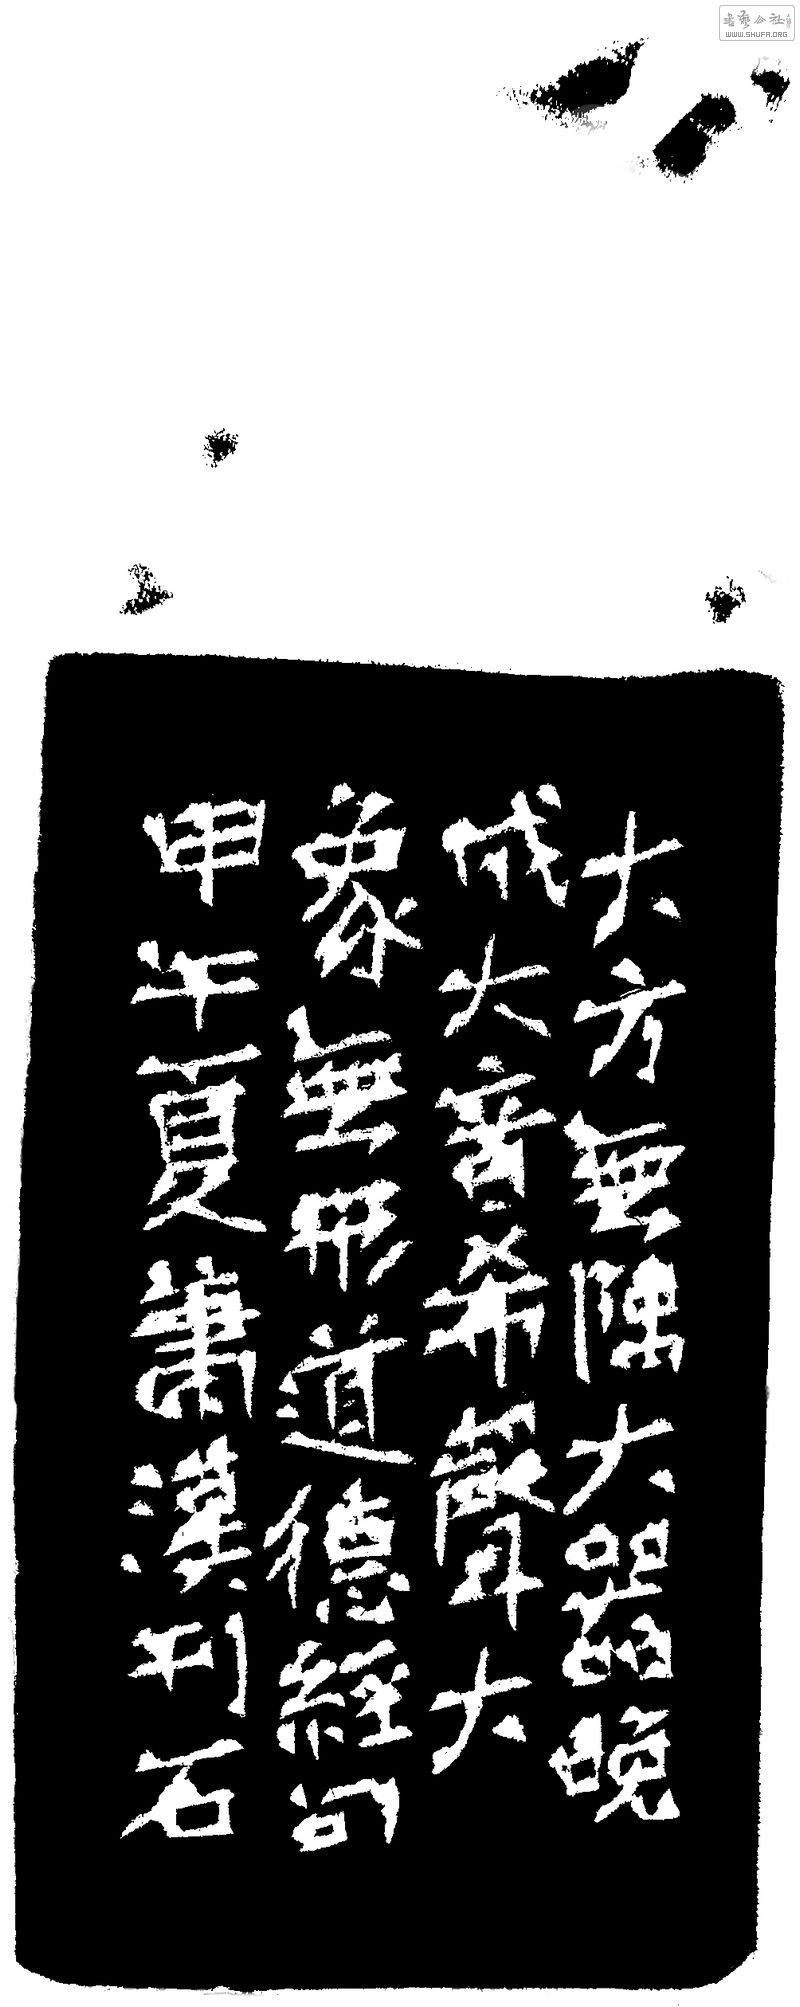 大方無隅大器晚
成大音希聲大
象無形道德經句
甲午夏蕭漢刊石
書藝公社
WWW.SHUFA.ORG